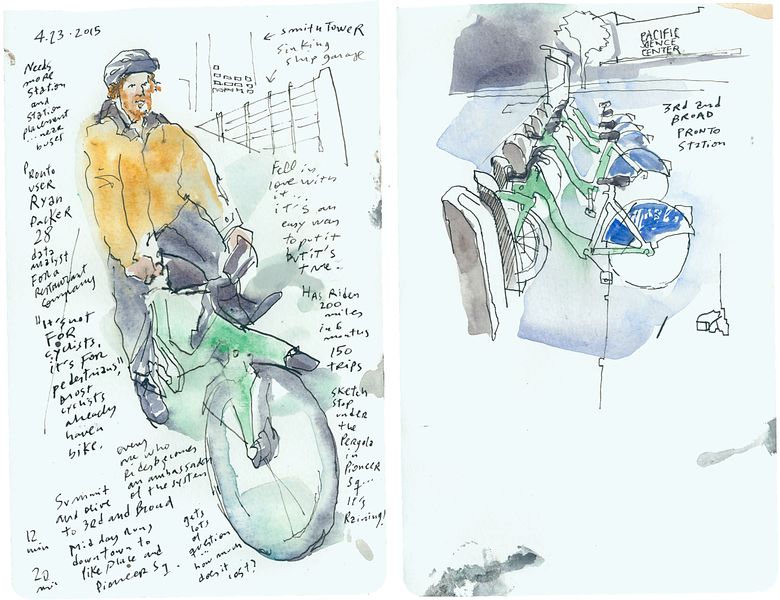 4.23.2015
← Smith Tower
Sinking
Ship garage
Needs
more
station
and
station
placement
...near
buses
Pronto
user
Ryan
Packer
28
data
analyst
for a
restaurant
company
"It's not
for
cyclists,
it's for
pedestrians,"
most
cyclists
already
have a
bike.
Fell in
love with
it...
it's an
easy way
to put it
but it's
true.
Has ridden
200
miles
in 6
months
150
trips
Sketch
stop
under
the
Pergola
in
Pioneer
Sq...
it's
Raining!
every
one who
rides becomes
an ambassador
of the system
gets
lots
of
question
...
how much
does it cost?
Summit
and olive
to 3rd and Broad
12
min
Mid day runs
downtown to
like Pike and
Pioneer Sq.
20
min
PACIFIC
SCIENCE
CENTER
3rd and
BROAD
PRONTO
Station